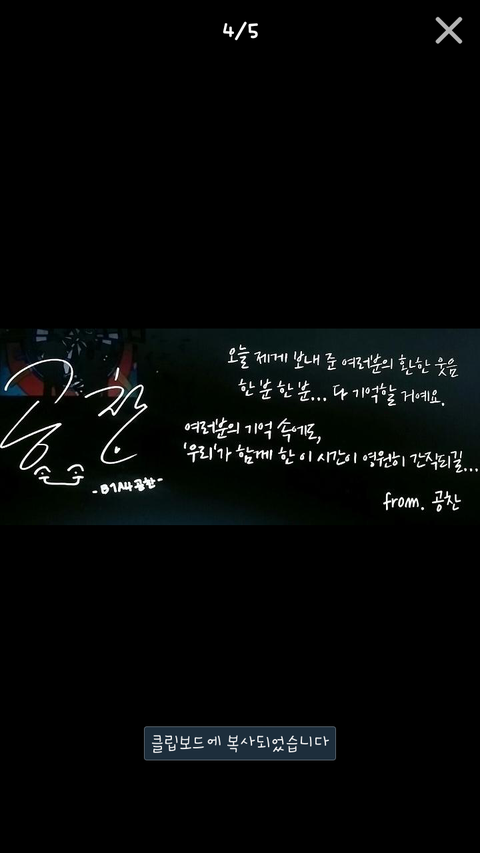 4/5
오늘 제게 보내 준 여러분의 환한 웃음
한 분 한 분... 다 기억할 거예요.
여러분의 기억 속에도,
'우리'가 함께 한 이 시간이 영원히 간직되길...
from. 공찬
공찬
-B1A4 공찬-
클립보드에 복사되었습니다